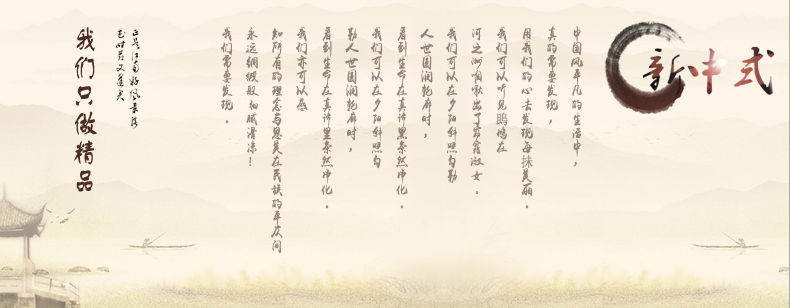 新中式
中国风平凡的生活中，
真的常要发现，
用我们的心去发现每抹美丽。
我们可以听见鹍鸣在
河之洲咱啾出了窈窕淑女。
我们可以在夕阳斜照向勤
人世国润乾麻时，
看到生命在真谛里忝然净化。
我们可以在夕阳斜照向
勤人世国润乾麻时，
看到生命在真谛里忝然净化。
我们亦可以感
知所有的理念与思美在民族的平庆间
永远绸缎般细腻滑凉！
我们常要发现。
正是江南好风景
花时节又逢君
我们只做精品